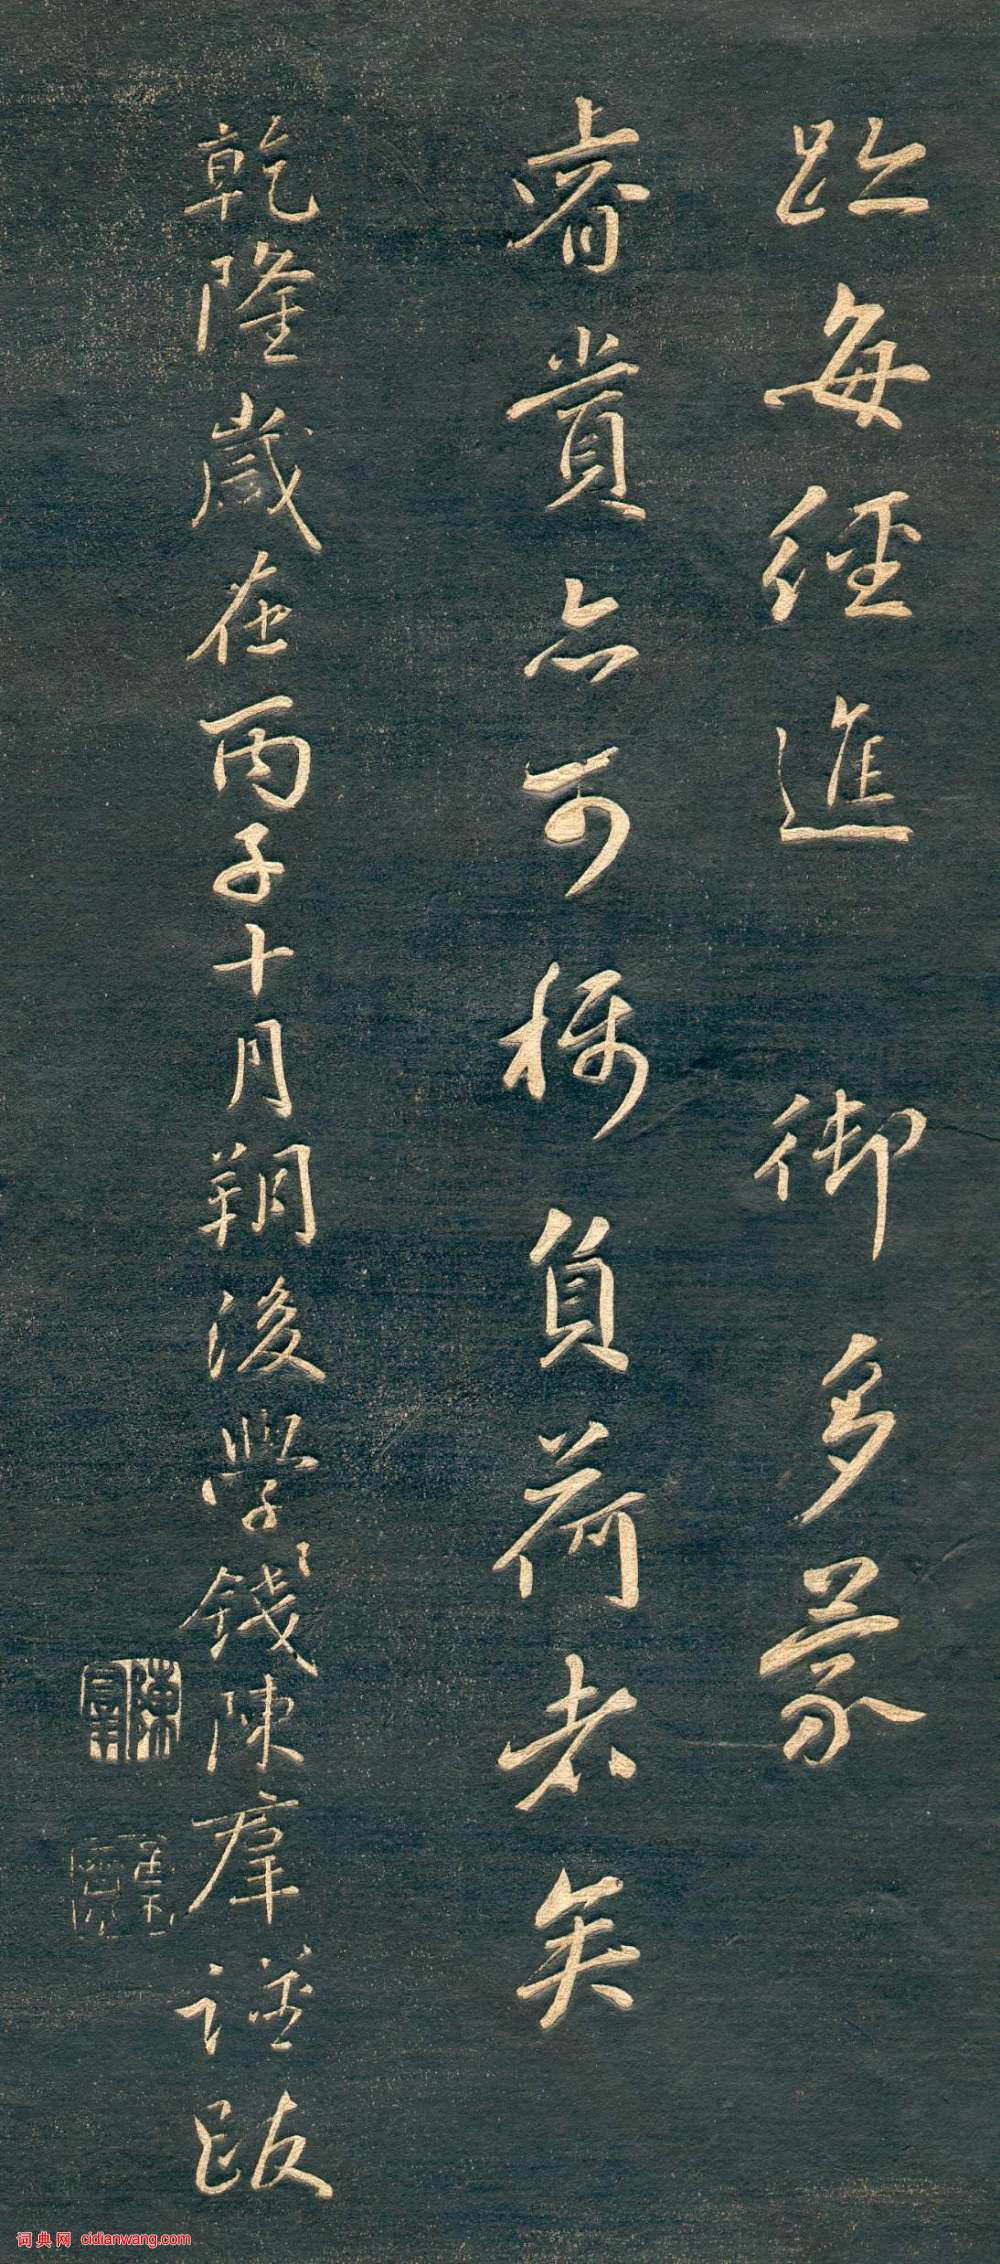 趾每經進 御多蒙
睿賞亦可稱負荷者矣
乾隆歲在丙子十月朔後學錢陳羣謹跋
陳羣
词典网 cidianwang.com